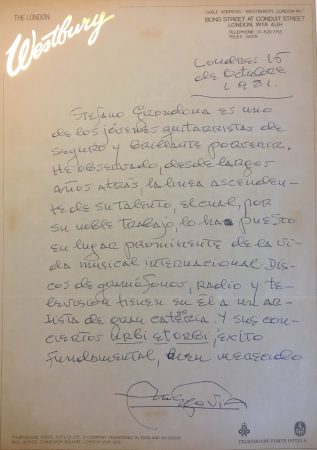 THE LONDON
Westbury
CABLE ADDRESS: WESTBUROTL LONDON W.1
BOND STREET AT CONDUIT STREET
LONDON, W1A 4UH
TELEPHONE: 01-629 7755
TELEX:
Londres 15
de Octubre
1981.
Stefano Grondona es uno
de los jóvenes guitarristas de
seguro y brillante porvenir.
He observado, desde largos
años atrás, la linea ascenden-
te de su talento, el cual, por
su noble trabajo, lo ha puesto
en lugar prominente de la vi-
da musical internacional. Dis-
cos de gramófonos, radio y te-
levisión tienen en el a un ar-
tista de gran categria. Y sus con-
ciertos urbi et orbi, éxito
fundamental, bien merecido
Segovia
TRUSTHOUSE FORTE HOTELS LTD. A COMPANY REGISTERED IN ENGLAND No.
REG. OFFICE:
TRUSTHOUSE FORTE HOTELS